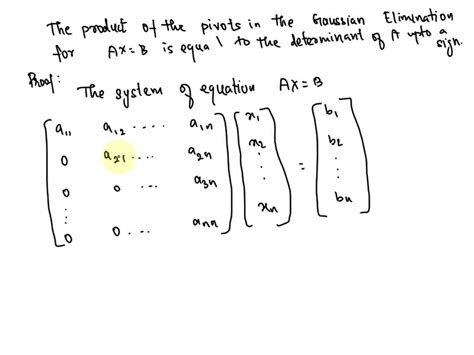 The product of the pivots in the Gaussian Elimination
for AX=B is equal to the determinant of A upto a
sign.
Proof:
The system of equation AX=B
a₁₁ a₁₂ .... a₁ₙ x₁ b₁
0 a₂₁ .... a₂ₙ x₂ = b₂
0 0 ... a₃ₙ ⋮ ⋮
⋮
0 0 ... aₙₙ xₙ bₙ